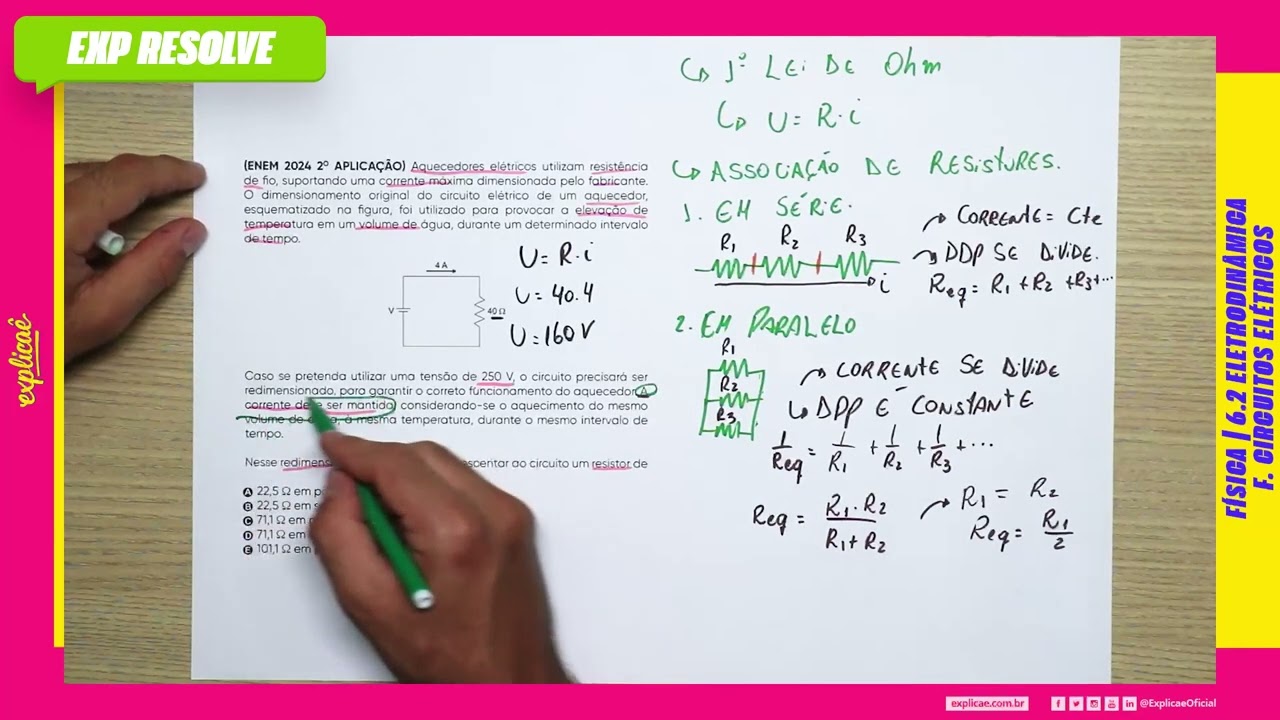 EXP RESOLVE
(ENEM 2024 2º APLICAÇÃO) Aquecedores elétricos utilizam resistência
de fio, suportando uma corrente máxima dimensionada pelo fabricante.
O dimensionamento original do circuito elétrico de um aquecedor,
esquematizado na figura, foi utilizado para provocar a elevação de
temperatura em um volume de água, durante um determinado intervalo
de tempo.
4 A
V
40 Ω
U = R · i
U = 40.4
U = 160 V
Caso se pretenda utilizar uma tensão de 250 V, o circuito precisará ser
redimensionado, para garantir o correto funcionamento do aquecedor. A
corrente ser mantida, considerando-se o aquecimento do mesmo
volume de à mesma temperatura, durante o mesmo intervalo de
tempo.
Nesse ao circuito um resistor de
A 22,5 Ω em
B 22,5 Ω em
C 71,1 Ω em
D 71,1 Ω em
E 101,1 Ω em
↳ 1ª LEI DE Ohm
↳ U = R · i
↳ ASSOCIAÇÃO DE RESISTORES.
1. EM SÉRIE.
R1 R2 R3
i
CORRENTE = Cte
DDP SE DIVIDE.
Req = R1 + R2 + R3 + ...
2. EM PARALELO
R1
R2
R3
CORRENTE SE DIVIDE
DDP É CONSTANTE
1/Req = 1/R1 + 1/R2 + 1/R3 + ...
Req = R1 . R2 / R1 + R2
R1 = R2
Req = R1/2
explicaê
FÍSICA | 6.2 ELETRODINÂMICA
F. CIRCUITOS ELÉTRICOS
explicae.com.br
@ExplicaeOficial